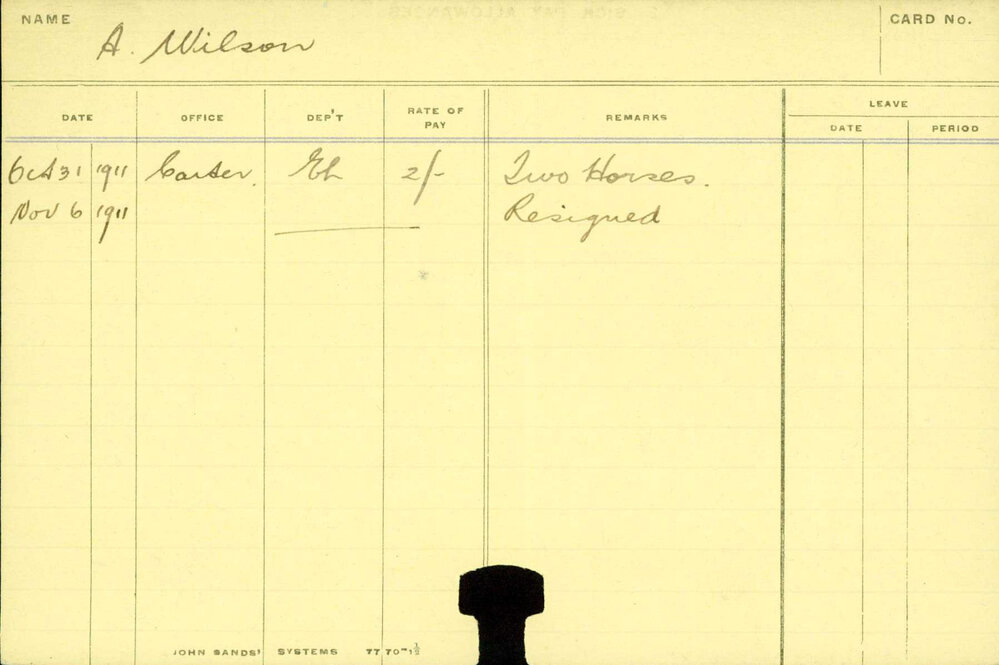 NAME A. Wilson CARD No.
DATE OFFICE DEP'T RATE OF PAY REMARKS LEAVE
DATE PERIOD
Oct 31 1911 Carter. Eh 2/- Two Horses.
Nov 6 1911 Resigned
JOHN SANDS' SYSTEMS 77 70